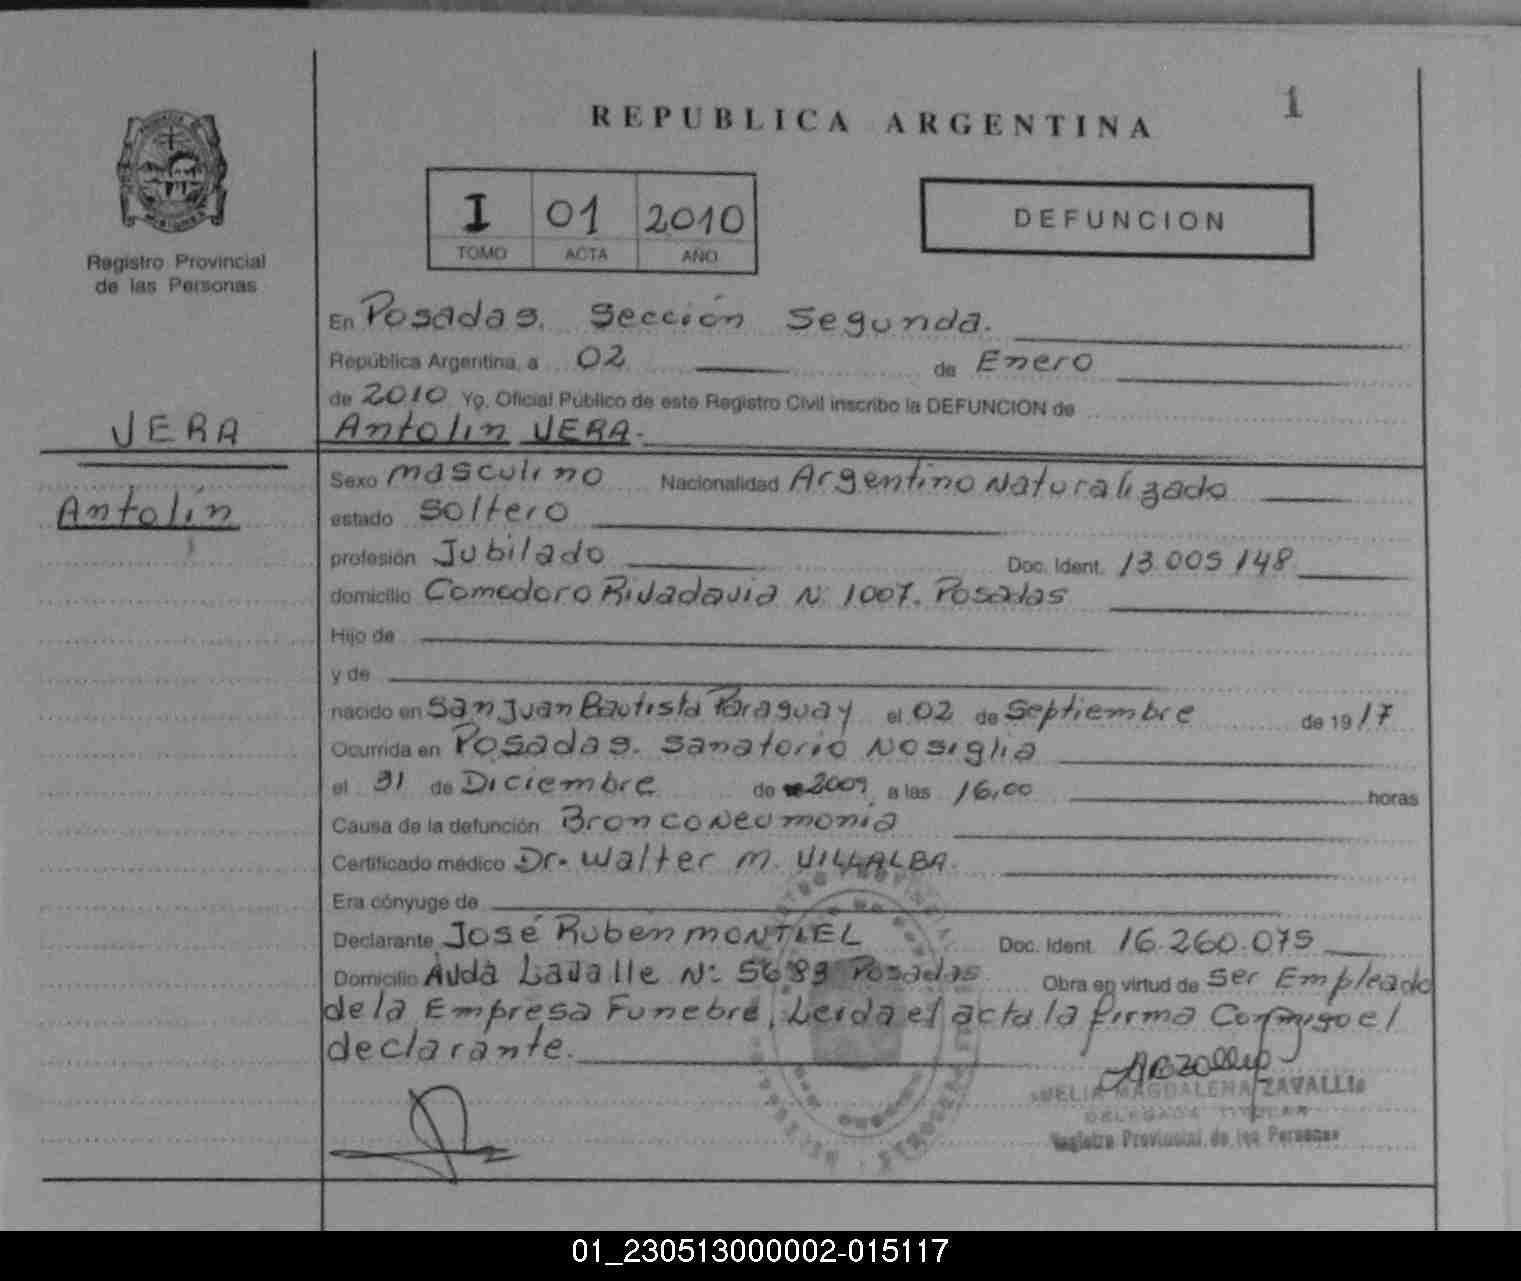 1
REPUBLICA ARGENTINA
I 01 2010
TOMO ACTA AÑO
DEFUNCION
Registro Provincial
de las Personas
VERA
Antolín
En Posadas. Sección Segunda.
República Argentina, a 02 de Enero
de 2010 Yo, Oficial Público de este Registro Civil inscribo la DEFUNCION de
Antolin VERA.
Sexo masculino Nacionalidad Argentino Naturalizado
estado Soltero
profesión Jubilado Doc. Ident. 13.005.148
domicilio Comodoro Rivadavia N: 1007. Posadas
Hijo de
y de
nacido en San Juan Bautista Paraguay el 02 de Septiembre de 1917
Ocurrida en Posadas. Sanatorio Nosiglia
el 31 de Diciembre de 2009, a las 16,00 horas
Causa de la defunción Bronconeumonia
Certificado médico Dr. Walter M. VILLALBA.
Era cónyuge de
Declarante José Ruben MONTIEL Doc. Ident. 16.260.075
Domicilio Avda Lavalle N: 5689 Posadas Obra en virtud de Ser Empleado
de la Empresa Funebre, Leida el acta la firma Conmigo el
declarante.
MAGDALENA ZAVALLIa
DELEGADA TITULAR
Registro Provincial de las Personas
01_230513000002-015117